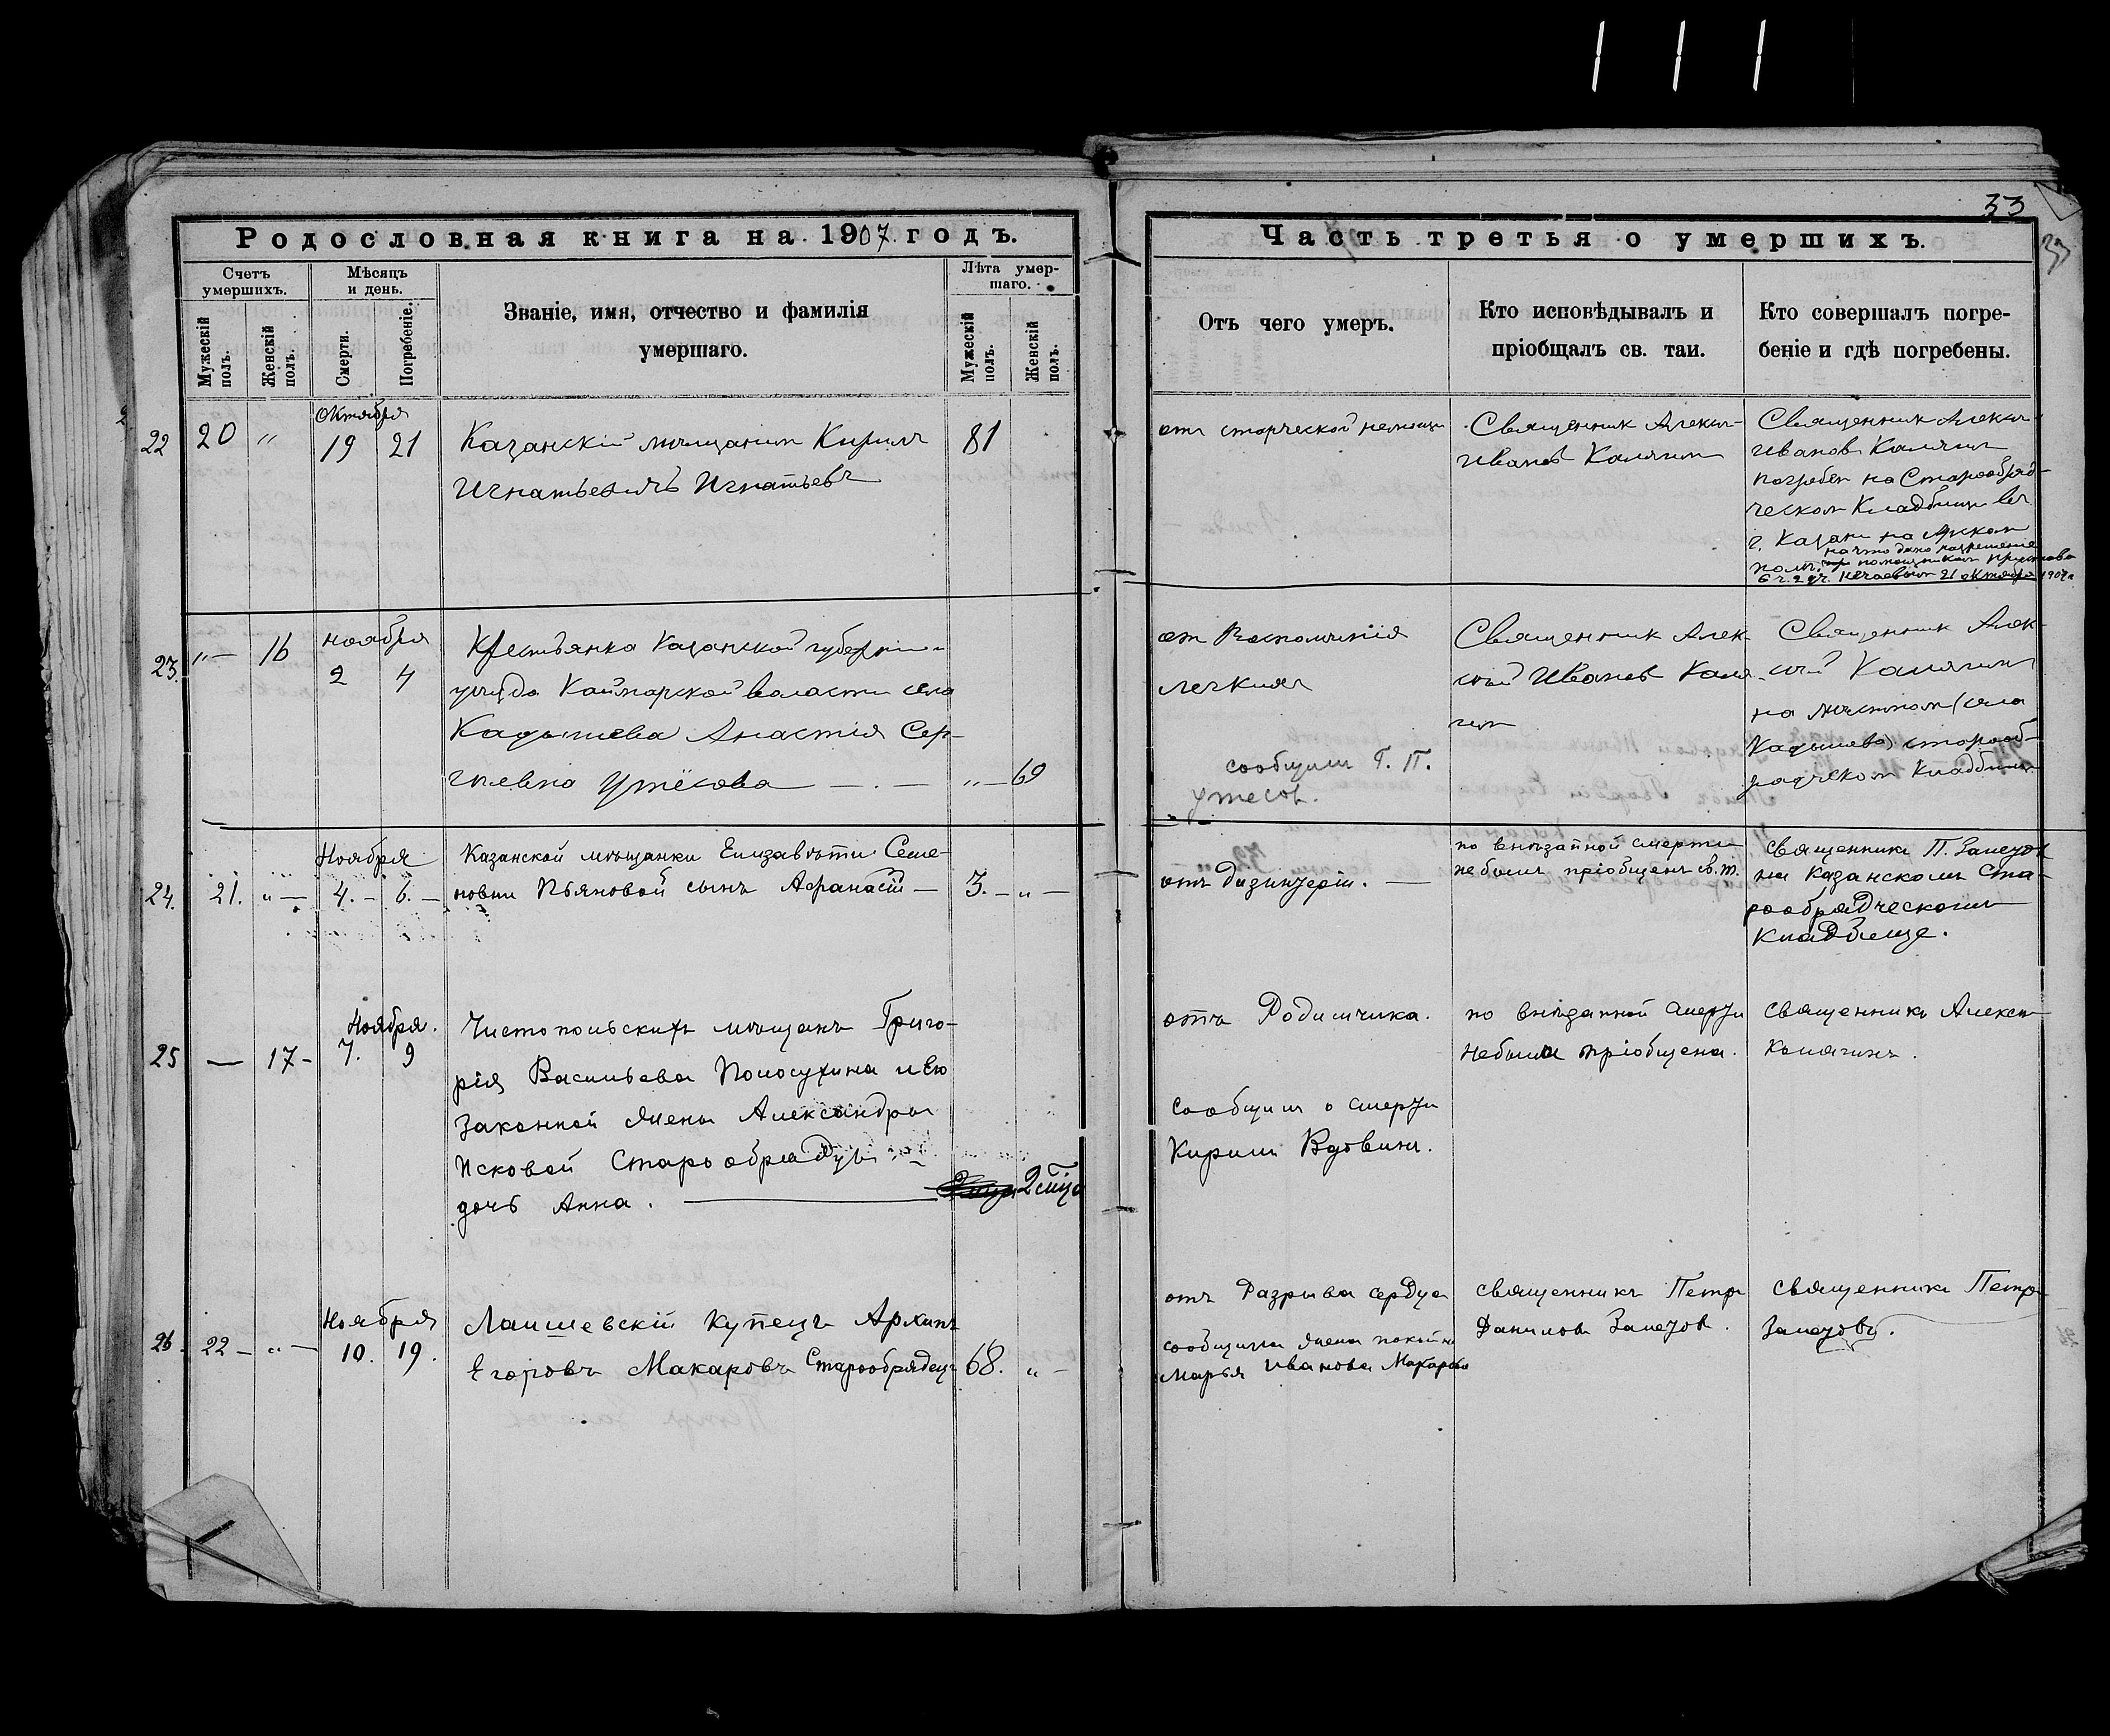 33
33
Родословная книга на 1907 годъ.
Счетъ умершихъ.
Мужескій полъ.
Женскій полъ.
Мѣсяцъ и день.
Смерти.
Погребеніе.
Званіе, имя, отчество и фамилія
умершаго.
Лѣта умер-
шаго.
Мужескій полъ.
Женскій полъ.
Часть третья о умершихъ.
Отъ чего умеръ.
Кто исповѣдывалъ и
пріобщалъ св. таи.
Кто совершалъ погре-
беніе и гдѣ погребены.
22 20 „ Октября 19 21
Казанскій мѣщанинъ Кирилъ
Игнатьевичъ Игнатьевъ
81
отъ старческой немощи
Священник Алексѣй
Ивановъ Калягин
Священник Алексѣй
Иванов Калягин
погребен на Старообряд-
ческом Кладбищѣ въ
г. Казани на Арском
полѣ, на что дано разрешение
помощником пристава
6 ч. 2 уч. Нечаевым 21 октября 1907 г
23. „— 16 ноября 2 4
Крестьянка Казанской губернии
уѣзда Каймарской волости села
Кадышева Анастія Сер-
гѣевна Утёсова — . —
„— 69
от Воспаленія
легких
сообщил Г. П.
Утесов.
Священник Алек
сѣй Иванов Каля-
гин
Священник Алек-
сѣй Калягин
на мѣстном (села
Кадышева) старооб-
рядческом Кладбищѣ
24. 21. „ — Ноября 4. — 6. —
Казанской мѣщанки Елизавѣты Семе-
новны Пьяновой сынъ Афанасій —
3. — „ —
отъ дизинтеріи. —
по внѣзапной смерти
небылъ пріобщенъ св. т.
священникъ П. Залетов
на Казанскомъ Ста-
рообрядческомъ
Кладбище.
25 — 17 — Ноября. 7. 9
Чистопольскихъ мѣщанъ Григо-
рія Васильева Полосухина и Ею
законной жены Александры
Исковой Старообрядцы
дочь Анна. —
2 мѣсяца
отъ Родимчика.
Сообщил о смерти
Кирилъ Вдовинъ.
по внѣзапной смерти
небыла пріобщена.
священникъ Алексѣй
Калягинъ.
26. 22 — „ — Ноября 10. 19.
Лаишевскій купецъ Архипъ
Егоровъ Макаровъ Старообрядецъ
68. „ —
отъ Разрыва сердца
сообщила жена покойна
Марья Иванова Макарова
священникъ Петр
Данилов Залетов.
священникъ Петр
Залетовъ.